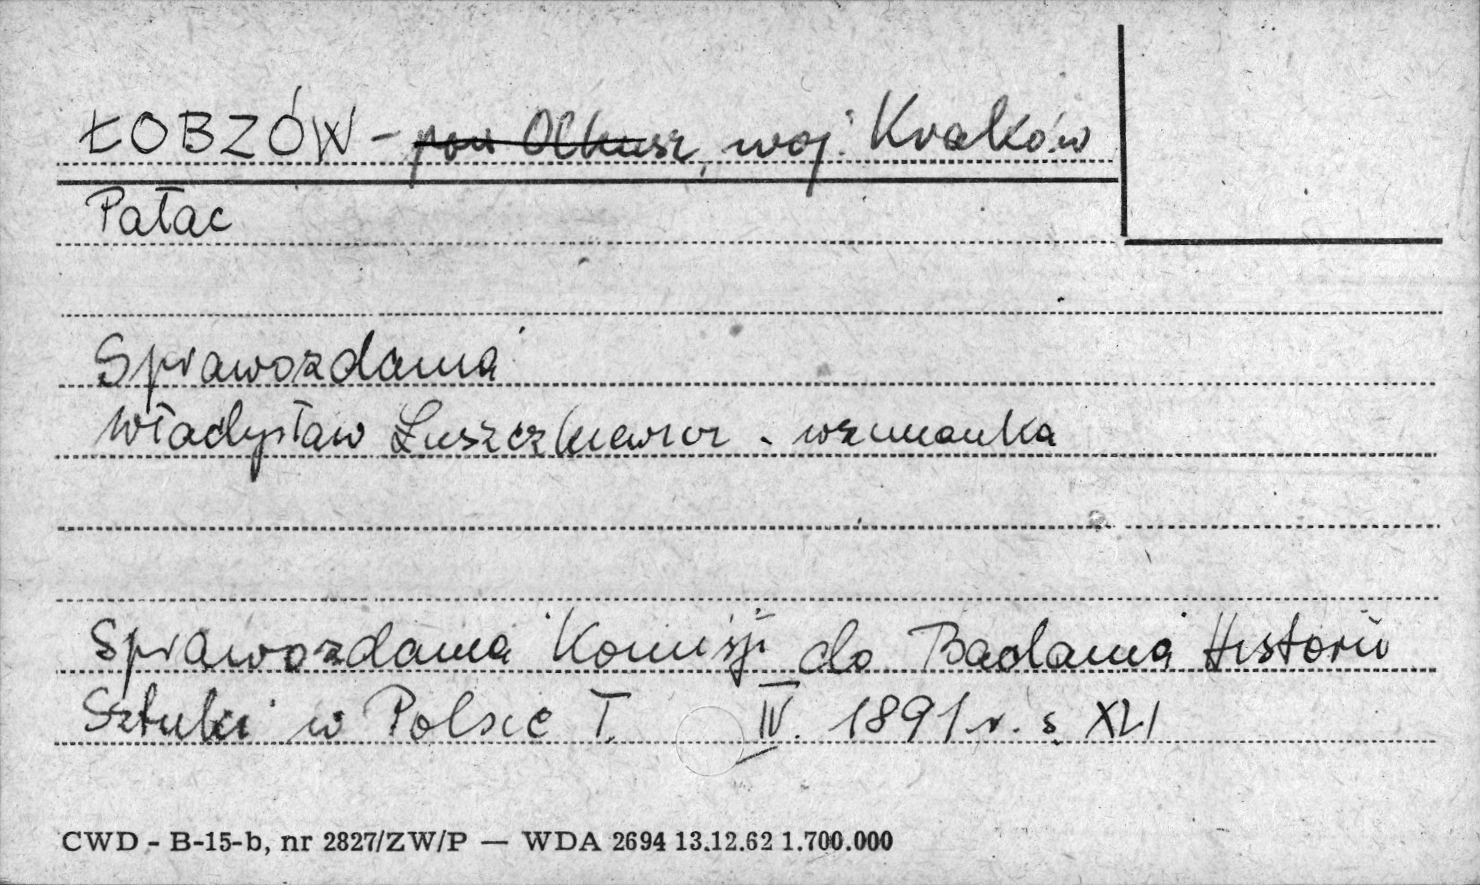 ŁOBZÓW - pow Olkusz, woj. Kraków
Pałac
Sprawozdania
Władysław Łuszczkiewicz - wzmianka
Sprawozdania Komisji do Badania Historii
Sztuki w Polsce T. IV. 1891 r. s. XLI
CWD - B-15-b, nr 2827/ZW/P — WDA 2694 13.12.62 1.700.000